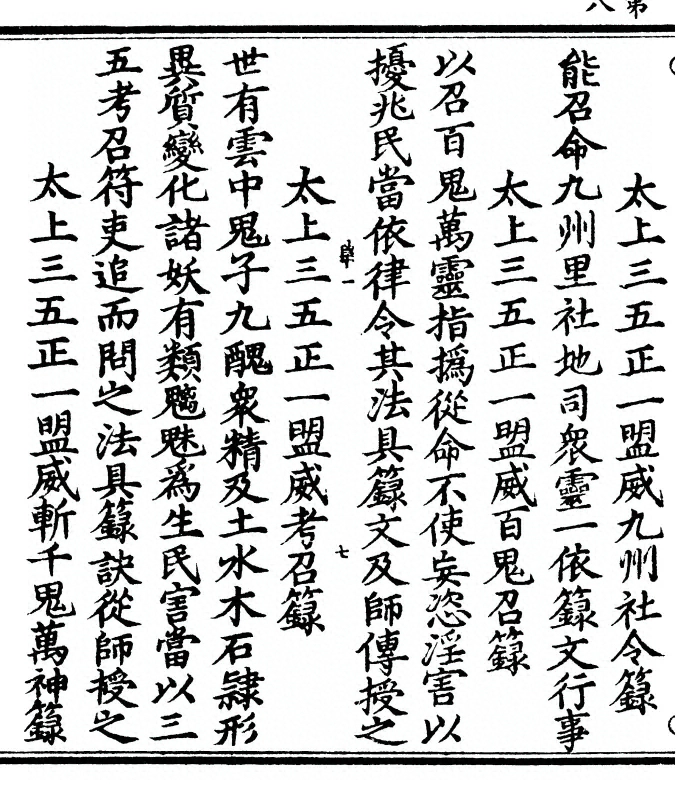 太上三五正一盟威九州社令籙
能召命九州里社地司衆靈一依籙文行事
太上三五正一盟威百鬼召籙
以召百鬼萬靈指撝從命不使妄恣淫害以
擾兆民當依律令其法具籙文及師傳授之
太上三五正一盟威考召籙
世有雲中鬼子九醜衆精及土水木石隷形
異質變化諸妖有類魑魅爲生民害當以三
五考召符吏追而問之法具籙訣從師授之
太上三五正一盟威斬千鬼萬神籙